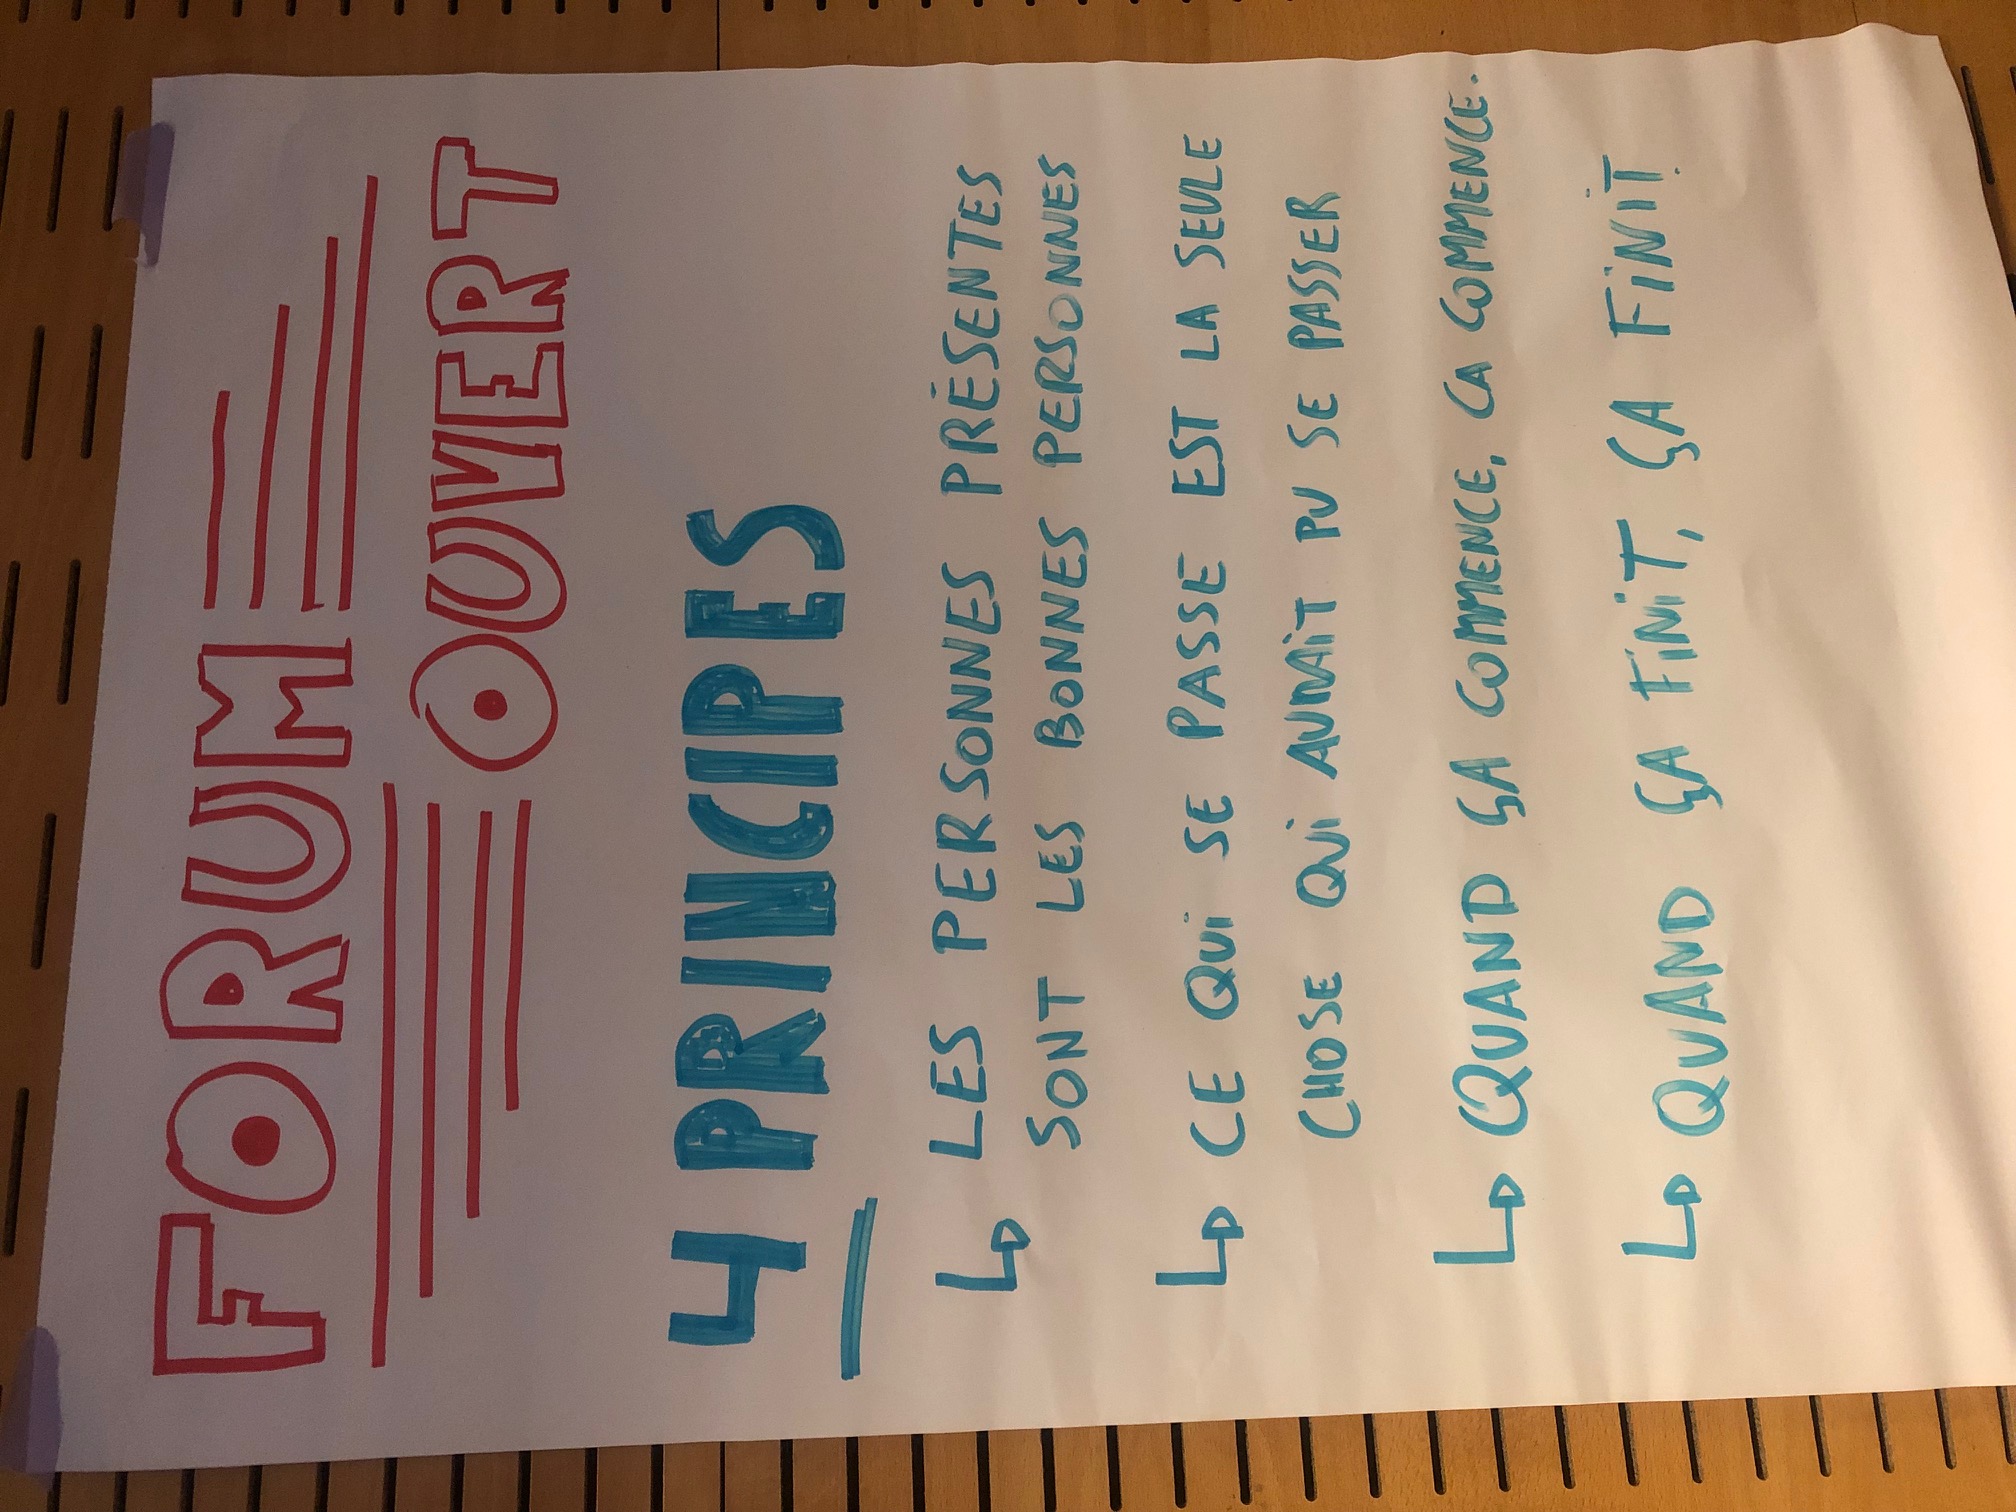 FORUM
OUVERT
4 PRINCIPES
↳ LES PERSONNES PRÉSENTES
SONT LES BONNES PERSONNES
↳ CE QUI SE PASSE EST LA SEULE
CHOSE QUI AURAIT PU SE PASSER
↳ QUAND ÇA COMMENCE, ÇA COMMENCE.
↳ QUAND ÇA FINIT, ÇA FINIT